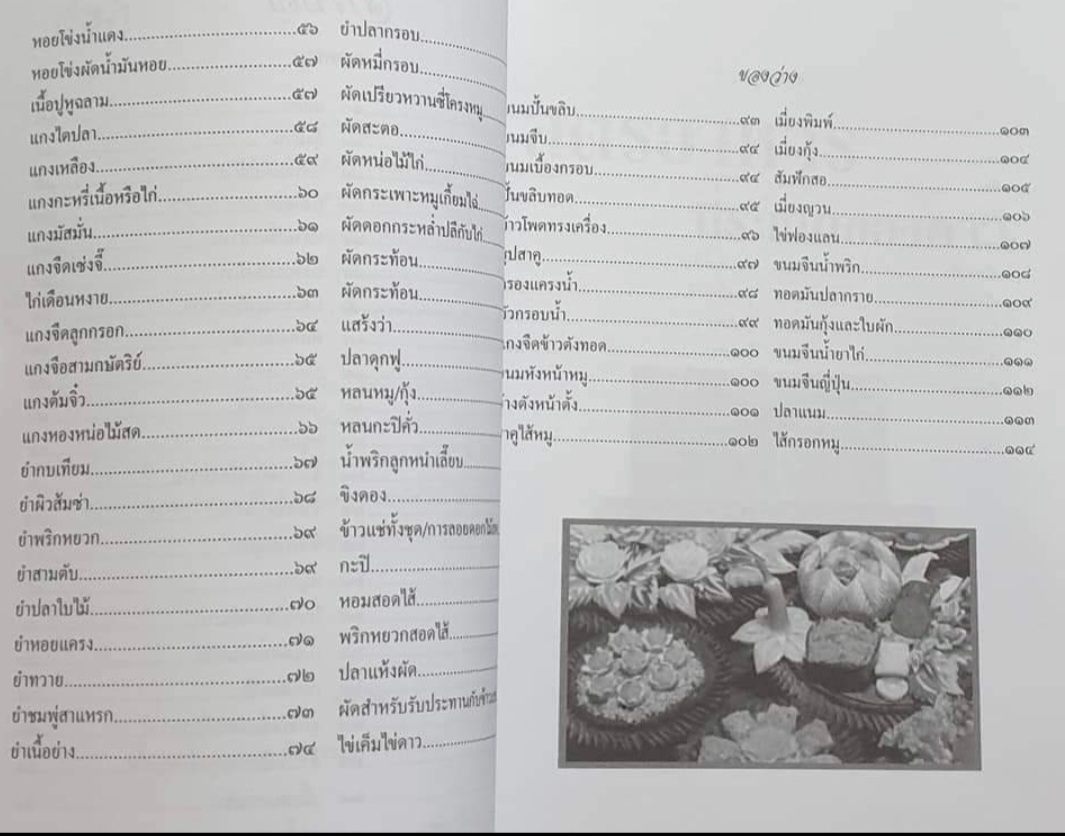 หอยโข่งน้ำแดง....................................๕๖
หอยโข่งผัดน้ำมันหอย..........................๕๗
เนื้อปูหูฉลาม.......................................๕๗
แกงไตปลา..........................................๕๘
แกงเหลือง..........................................๕๙
แกงกะหรี่เนื้อหรือไก่............................๖๐
แกงมัสมั่น...........................................๖๑
แกงจืดเซ่งจี๊........................................๖๒
ไก่เดือนหงาย.......................................๖๓
แกงจืดลูกกรอก...................................๖๔
แกงจือสามกษัตริย์...............................๖๕
แกงต้มจิ๋ว............................................๖๕
แกงหองหน่อไม้สด...............................๖๖
ยำกบเทียม..........................................๖๗
ยำผิวส้มซ่า..........................................๖๘
ยำพริกหยวก........................................๖๙
ยำสามดับ............................................๖๙
ยำปลาใบไม้.........................................๗๐
ยำหอยแครง........................................๗๑
ยำทวาย...............................................๗๒
ยำชมพู่สาแหรก...................................๗๓
ยำเนื้อย่าง............................................๗๔
ยำปลากรอบ..................
ผัดหมี่กรอบ..................
ผัดเปรียวหวานซี่โครงหมู....
ผัดสะตอ......................
ผัดหน่อไม้ไก่.................
ผัดกระเพาะหมูเกี้ยมไฉ่....
ผัดดอกกระหล่ำปลีกับไก่....
ผัดกระท้อน..................
ผัดกระท้อน..................
แสร้งว่า.......................
ปลาดุกฟู.....................
หลนหมู/กุ้ง..................
หลนกะปิคั่ว..................
น้ำพริกลูกหนำเลี๊ยบ........
ขิงดอง........................
ข้าวแช่ทั้งชุด/การลอยดอกไม้
กะปิ...........................
หอมสอดไส้..................
พริกหยวกสอดไส้...........
ปลาแห้งผัด..................
ผัดสำหรับรับประทานกับ
ไข่เค็มไข่ดาว................
ของว่าง
นมปั้นขลิบ............................๙๓
นมจีบ...................................๙๔
นมเบื้องกรอบ........................๙๔
ปั้นขลิบทอด..........................๙๕
้าวโพดทรงเครื่อง....................๙๖
ุปสาคู...................................๙๗
รองแครงน้ำ...........................๙๘
ัวกรอบน้ำ..............................๙๙
กงจืดข้าวตังทอด....................๑๐๐
นมหังหน้าหมู.........................๑๐๐
้างตังหน้าตั้ง...........................๑๐๑
าคูไส้หมู................................๑๐๒
เมี่ยงพิมพ์..............................๑๐๓
เมี่ยงกุ้ง.................................๑๐๔
สัมฟักสอ................................๑๐๕
เมี่ยงญวน...............................๑๐๖
ไข่ฟองแลน.............................๑๐๗
ขนมจีนน้ำพริก........................๑๐๘
ทอดมันปลากราย.....................๑๐๙
ทอดมันกุ้งและใบผัก.................๑๑๐
ขนมจีนน้ำยาไก่.......................๑๑๑
ขนมจีนญี่ปุ่น...........................๑๑๒
ปลาแนม.................................๑๑๓
ไส้กรอกหมู..............................๑๑๔